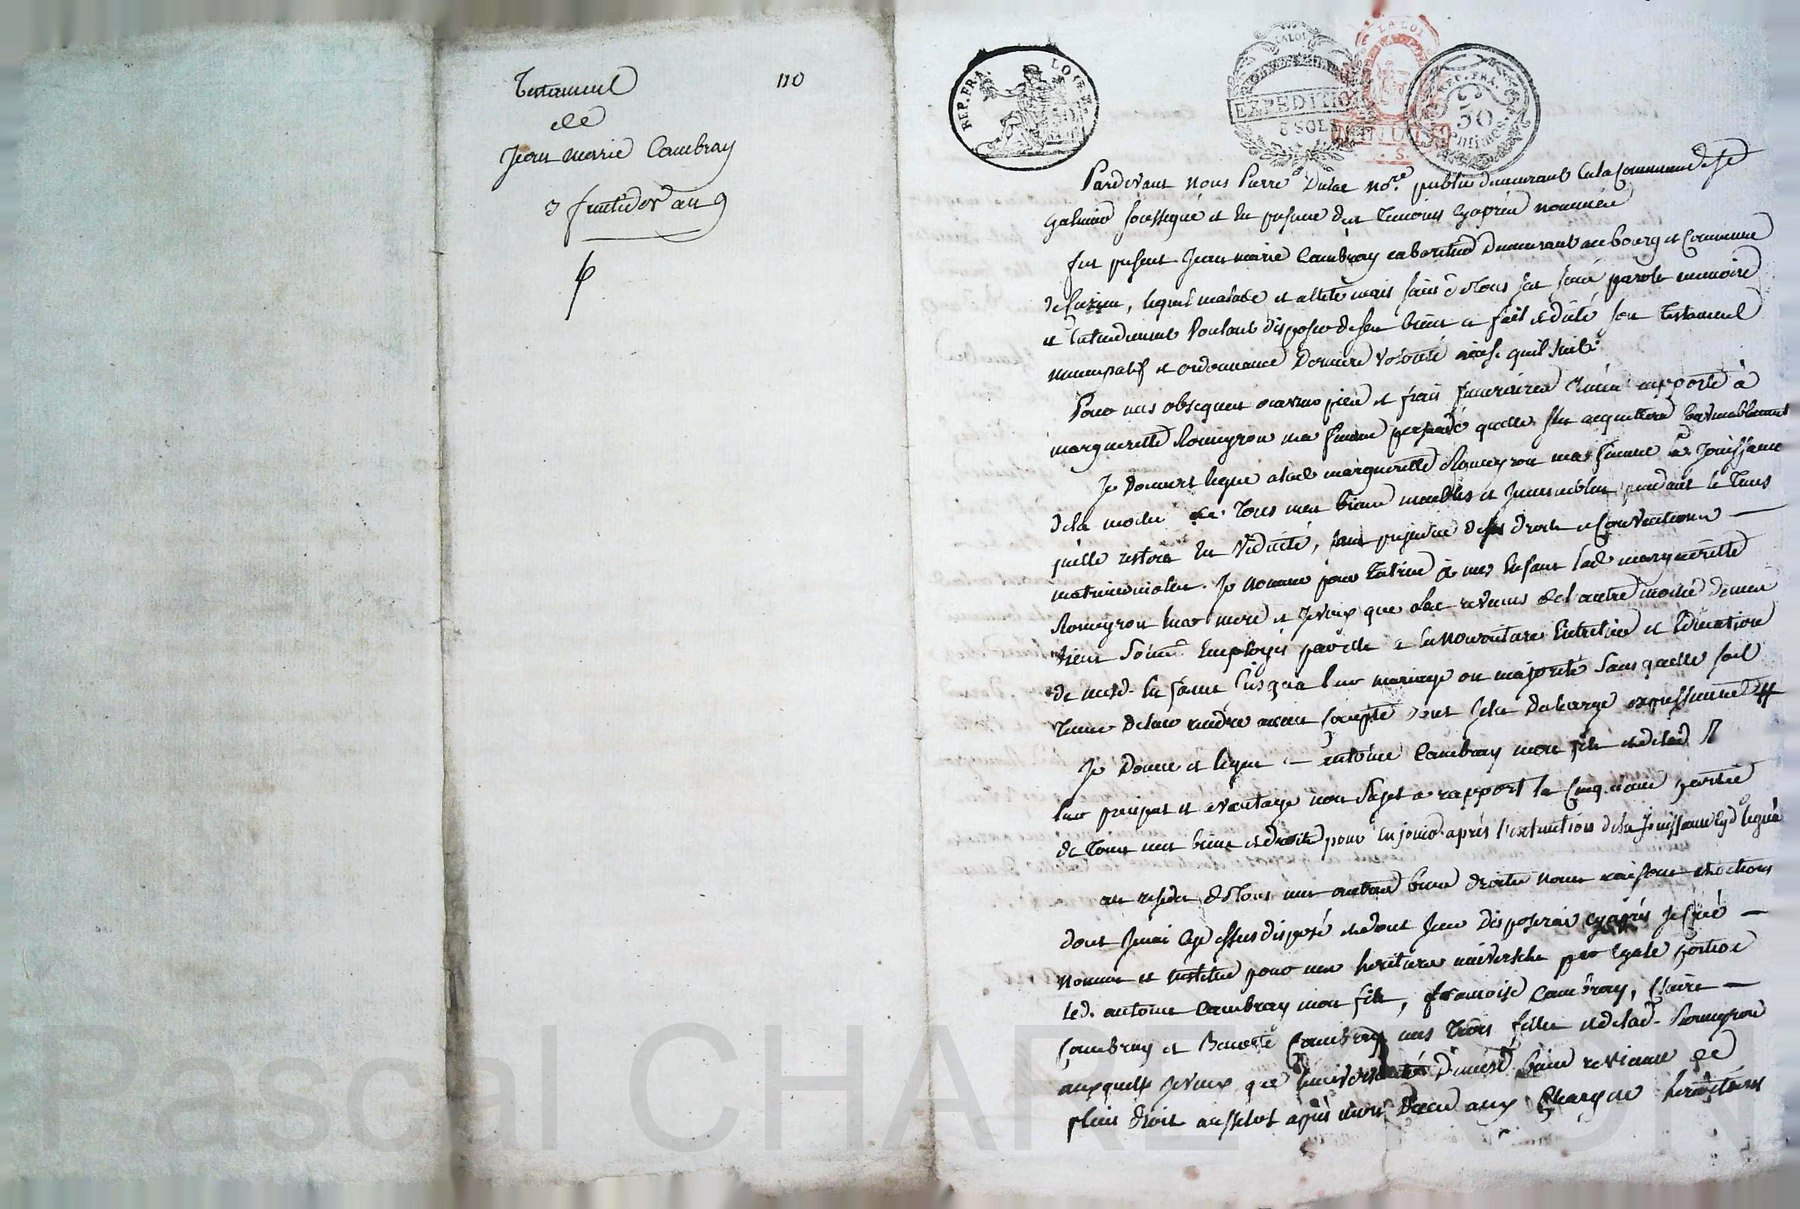 Testament 110
de
Jean marie Cambray
3 fructidor an 9
REP. FRA.
LA LOI
EXPEDITION
8 SOLS
LA LOI
MINUTE
REP. FRA.
50
Centimes
Pardevant nous Pierre Dulac no.re public demeurant en la Commune de St
galmier soussigné et en présence des temoins cy après nommés
fut présent Jean marie Cambray cabaretier demeurant au bourg et Commune
de lequel malade et alité mais sain de tous ses sens parole memoire
et entendement voulant disposer de ses biens a fait et dicté son testament
nuncupatif et ordonnance Derniere volonté ainsi quil suit
Pour mes obseques œuvres pies et frais funeraires Je m'en rapporte à
margueritte Romeyron ma femme persuadé quelle s'en acquittera
Je Donne et legue a lad. margueritte Romeyron ma femme la Jouissance
de la moitié de tous mes biens meubles et Immeubles pendant le tems
quelle restera en viduité, sans prejudice de ses droits et Conventions
matrimoniales. Je nomme pour tutrice à mes Enfans lad. margueritte
Romeyron leur mere et Je veux que les revenus de l'autre moitié de mes
biens soient Employés par elle a la nourriture Entretien et Education
de mesd. Enfans Jusqu'a leur mariage ou majorité sans quelle soit
tenue de leur rendre aucun compte dont Je la Decharge expressement
Je Donne et legue a antoine Cambray mon fils et de lad. R
par preciput et avantage non sujet a rapport la Cinquieme partie
de tous mes biens et droits pour en jouir après l'extinction de la Jouissance cyd. leguée
au residu de tous mes autres biens droits noms raisons et actions
dont Je n'ai Cy dessus disposé et dont Je ne disposerai cy après Je fais
nomme et Institue pour mes heritiers universels par Egale portion
led. antoine Cambray mon fils, françoise Cambray, Claire
Cambray et Benoite Cambray mes trois filles et de lad. Romeyron
auxquels Je veux que l'universalité de mesd. biens revienne de
plein droit aussitot après mon Deces aux Charges hereditaires
Pascal CHARETRON